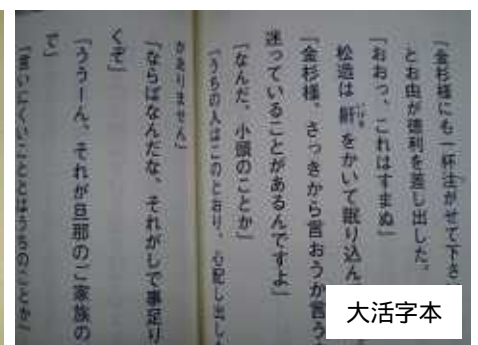 「金杉様にも一杯注がせて下さ
とお由が徳利を差し出した。
「おおっ、これはすまぬ」
松造は鼾をかいて眠り込ん
「金杉様、さっきから言おうか言う
迷っていることがあるんですよ」
「なんだ、小頭のことか」
「うちの人はこのとおり、心配し出し
がありません」
「ならばなんだな、それがしで事足り
くぞ」
「ううーん、それが旦那のご家族の
で」
「言いにくいこととはうちのことか」
大活字本